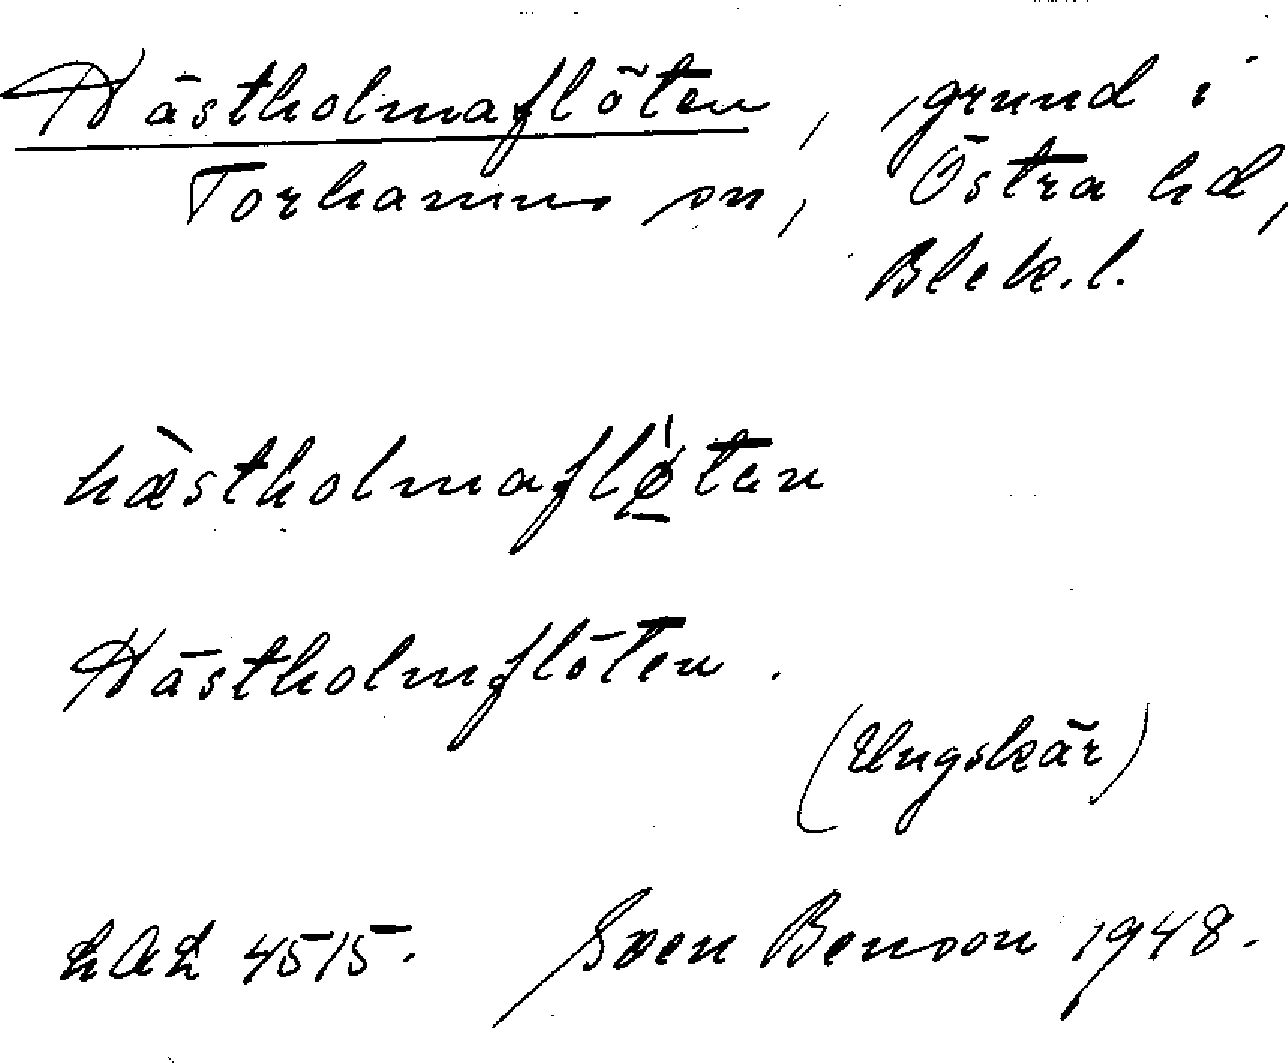 Hästholmaflöten, grund i
Torhamns sn, Östra hd,
Blek. l.
hæ̀stholmaflǿ̠ten
Hästholmflöten.
(Ungskär)
LAL 4515. Sven Benson 1948.